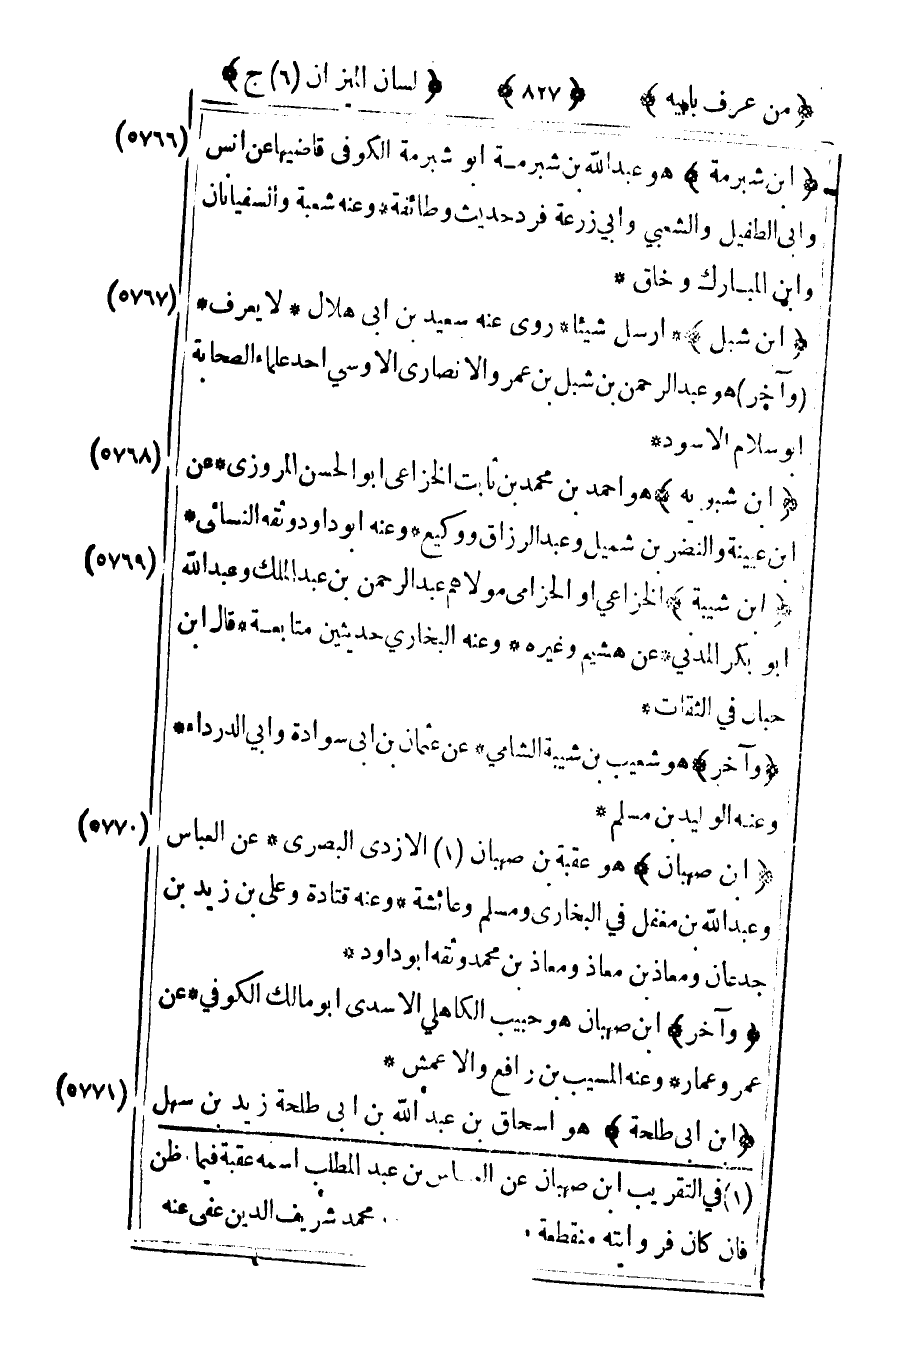 ﴿ من عرف بابيه ﴾ ﴿ ٨٢٧ ﴾ ﴿ لسان الميزان (٦) ج ﴾
﴿ ابن شبرمة ﴾ هو عبدالله بن شبرمـة ابو شبرمة الكوفى قاضيها عن انس (٥٧٦٦)
وابى الطفيل والشعبي وابي زرعة فرد حديث وطائفة * وعنه شعبة والسفيانان
وابن المبـارك وخلق *
﴿ ابن شبل ﴾ * ارسل شيئا * روى عنه سعيد بن ابى هلال * لا يعرف * (٥٧٦٧)
(وآخر) هو عبدالرحمن بن شبل بن عمرو الانصارى الاوسي احد علماء الصحابة
ابو سلام الاسود *
﴿ ابن شبويه ﴾ هو احمد بن محمد بن ثابت الخزاعى ابوالحسن المروزى * عن (٥٧٦٨)
ابن عيينة والنضر بن شميل وعبدالرزاق ووكيع * وعنه ابو داود وثقه النسائى *
﴿ ابن شيبة ﴾ الخزاعي او الحزامى مولاهم عبدالرحمن بن عبدالملك وعبدالله (٥٧٦٩)
ابو بكر المدني * عن هشيم وغيره * وعنه البخاري حديثين متابعـة * قال ابن
حبان في الثقات *
﴿ وآخر ﴾ هو شعيب بن شيبة الشامي * عن عثمان بن ابى سوادة وابي الدرداء *
وعنـه الوليد بن مسلم *
﴿ ابن صهبان ﴾ هو عقبة بن صهبان (١) الازدى البصرى * عن العباس (٥٧٧٠)
وعبدالله بن مغفل في البخارى ومسلم وعائشة * وعنه قتادة وعلى بن زيد بن
جدعان ومعاذ بن معاذ ومعاذ بن محمد وثقه ابو داود *
﴿ وآخر ﴾ ابن صهبان هو حبيب الكاهلي الاسدى ابو مالك الكوفي * عن
عمر وعمار * وعنه المسيب بن رافع والاعمش *
﴿ ابن ابى طلحة ﴾ هو اسحاق بن عبد الله بن ابى طلحة زيد بن سهل (٥٧٧١)
(١) في التقريب ابن صهبان عن العباس بن عبد المطلب اسمه عقبة فيما ظن
فان كان فروايته منقطعة . محمد شريف الدين عفى عنه